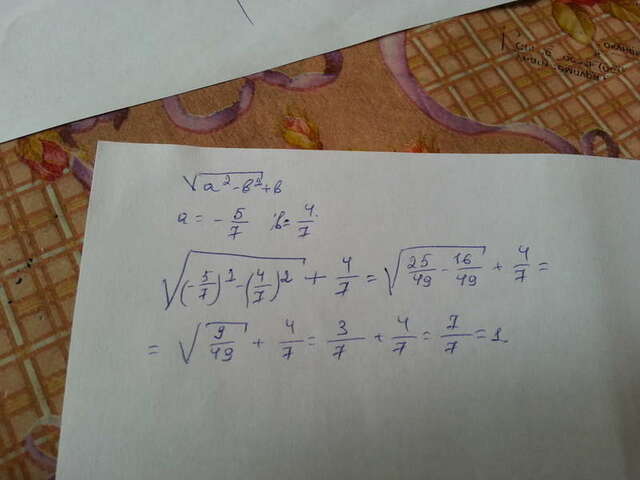 √(a² - в²) + в
a = - 5/7 ; в = 4/7.
√((-5/7)² - (4/7)²) + 4/7 = √(25/49 - 16/49) + 4/7 =
= √(9/49) + 4/7 = 3/7 + 4/7 = 7/7 = 1